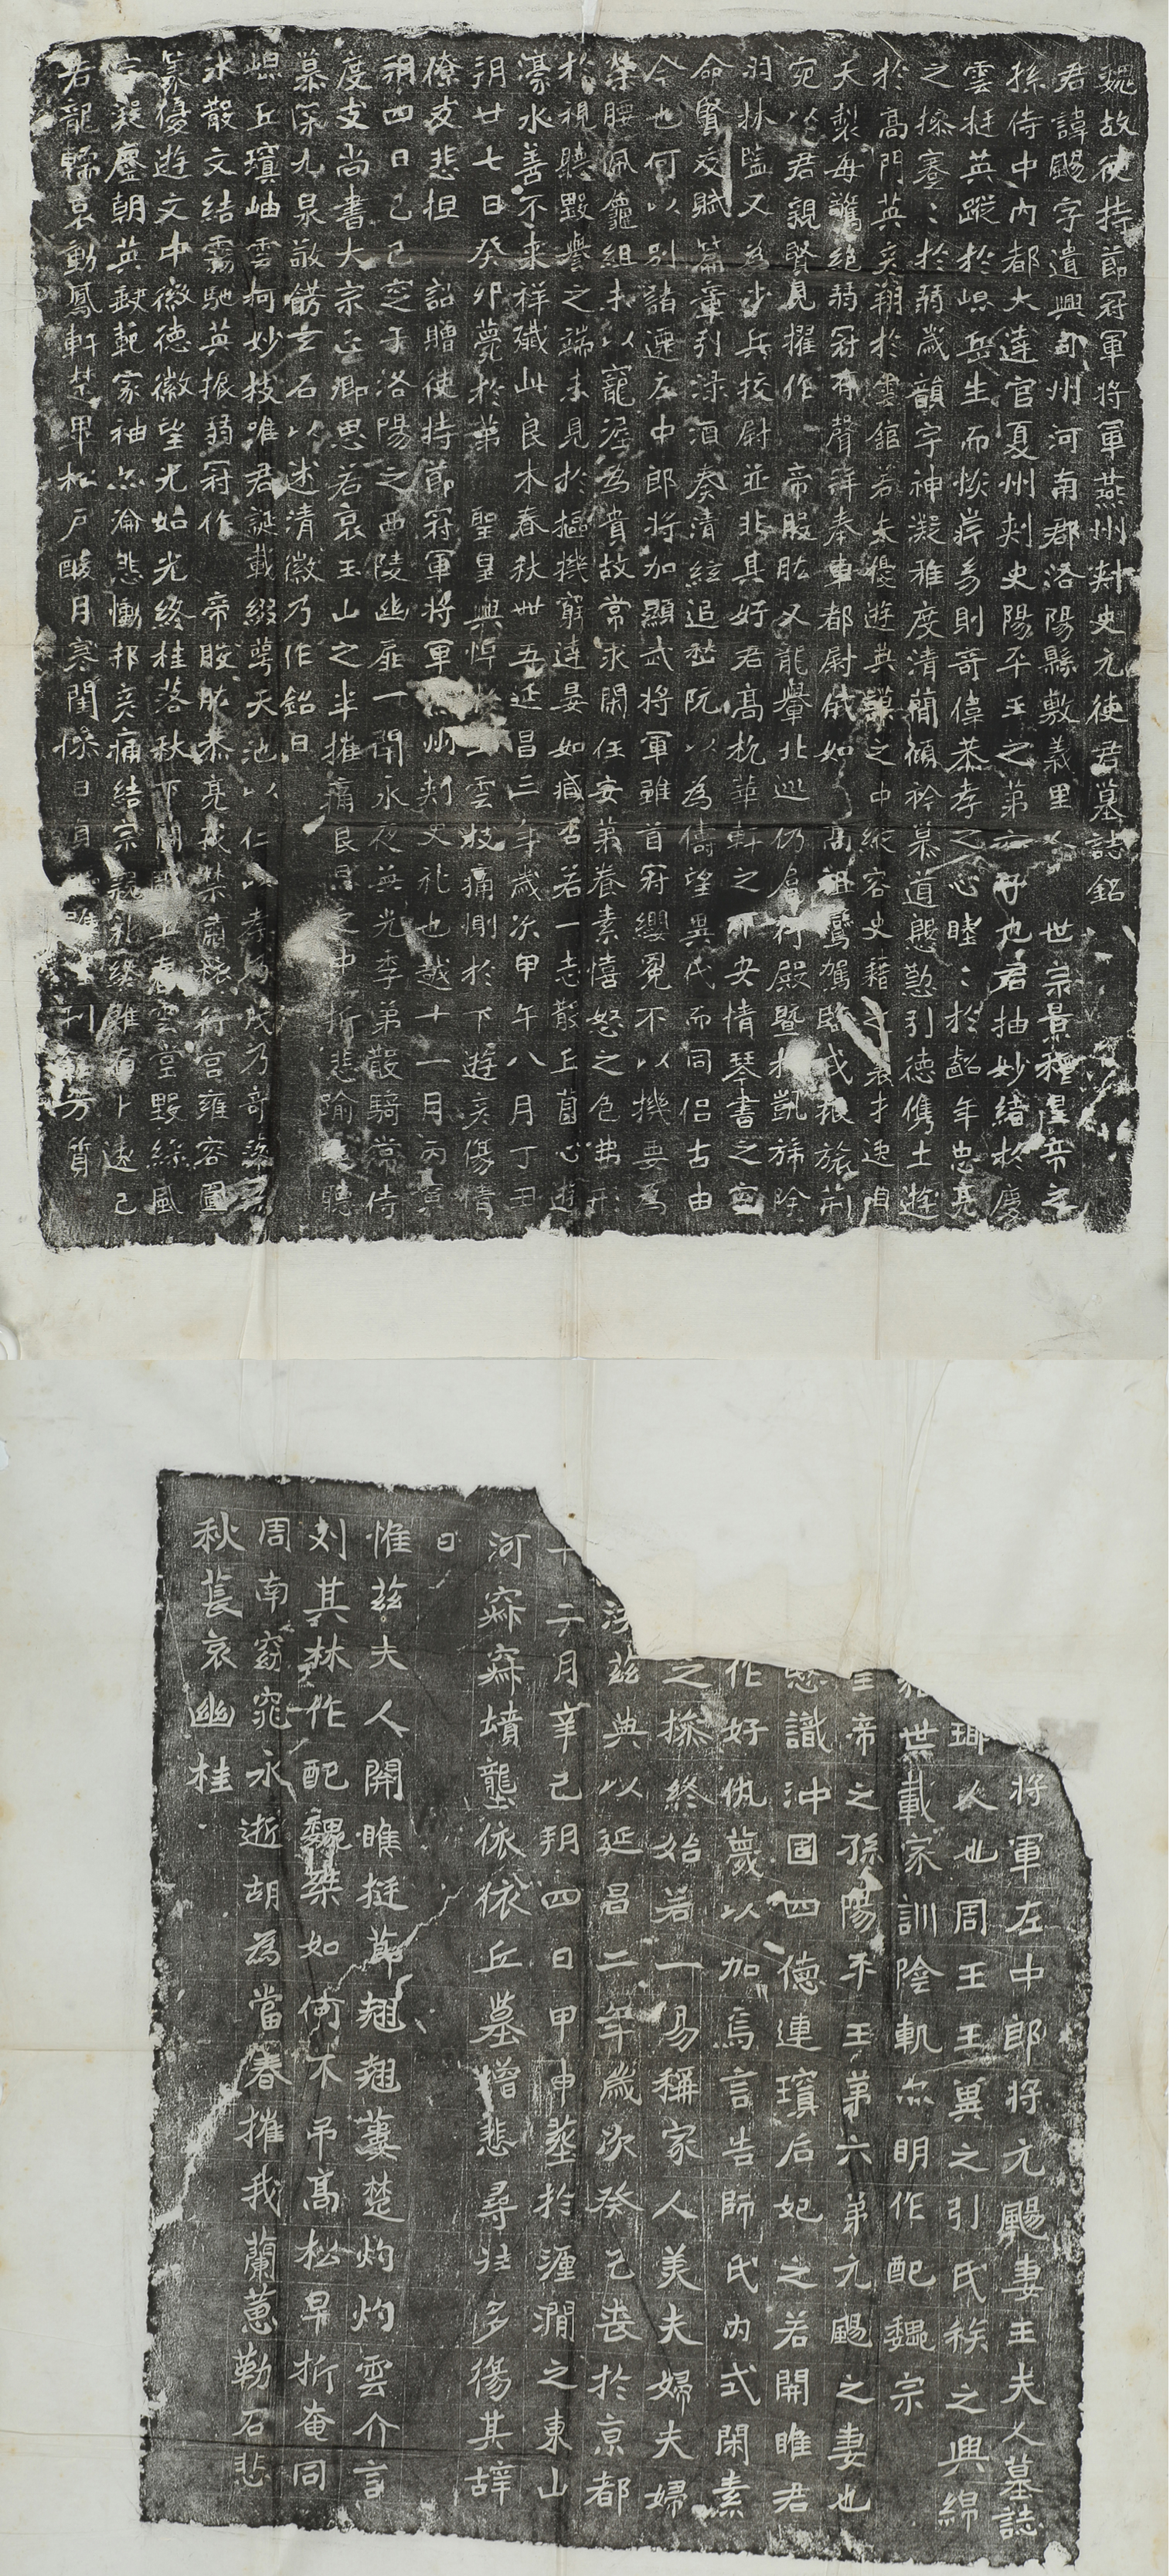 魏故使持節冠軍將軍燕州刺史元使君墓誌銘
君諱颺字遺興司州河南郡洛陽縣敷義里人世宗景穆皇帝之
孫侍中內都大達官夏州刺史陽平王之第六子也君抽妙緒於慶
雲挺英蹤於岐嶷生而恢岸長則奇偉恭孝之心睦〻於齠年忠亮
之操蹇〻於弱歲韻宇神凝雅度清簡傾衿慕道慇懃引德儁士遊
於高門英彥翔於雲館若夫優遊典謨之中縱容史籍之表才逸自
天製每驚絕弱冠有聲拜奉車都尉俄如高祖鸞駕臨戎振旅荊
宛以君親賢見擢作帝股肱又龍轝北巡仍倉行殿暨相凱旆除
羽林監又為步兵校尉並非其好君高枕華軒之下安情琴書之室
命賢友賦篇章引淥酒奏清絃追嵇阮以為儔望異代而同侶古由
今也何以別諸遷左中郎將加顯武將軍雖首冠纓冕不以機要為
榮腰佩龜組不以寵渥為貴故常求閑任安第養素憘怒之色弗形
於視聽毀譽之端未見於樞機窮達晏如臧否若一志散丘園心遊
濠水善不來祥殲此良木春秋卌五延昌三年歲次甲午八月丁丑
朔廿七日癸卯薨於第聖皇興悼雲枝痛惻於下遊矣傷情
僚友悲怛詔贈使持節冠軍將軍州刺史礼也越十一月丙寅
朔四日己巳窆于洛陽之西陵幽扉一閉永夜無光季弟散騎常侍
度支尚書大宗正卿思若哀玉山之半摧痛良之中折悲踰聽
慕深九泉敬鐫玄石以述清徽乃作銘曰
崐丘瓊岫雲柯妙枝唯君誕載綴萼天池以仁以孝乃奇
水散文結霧馳英振弱冠作帝股肱恭亮戎禁肅穆行宮雍容圖
篆優遊文中徽德徽望光如光終桂落秋下雲堂毀絲風
鏖朝英缺範家神亦淪悲慟邦彥痛結宗礼卜遠已
若龍轜哀動鳳軒楚畢松戶酸月寒閨慘日貞唯刊芳質
將軍左中郎將元颺妻王夫人墓誌
人也周王王翼之引氏族之興綿
世載家訓陰軌亦明作配魏宗
帝之孫陽平王第六弟元颺之妻也
識沖固四德連瓊后妃之若關睢君
作好仇蔑以加焉言告師氏內式閑素
之操終始若一易稱家人美夫婦夫婦
茲典以延昌二年歲次癸巳喪於京都
十二月辛巳朔四日甲申塟於湹澗之東山
河寐寐墳壟依依丘墓增悲尋往多傷其辞
曰
惟茲夫人開睢挺莭翹翹蔞楚灼灼雲介言
刘其林作配魏桀如何不吊高松早折奄同
周南窈窕永逝胡為當春摧我蘭蕙勒石悲
秋萇哀幽桂